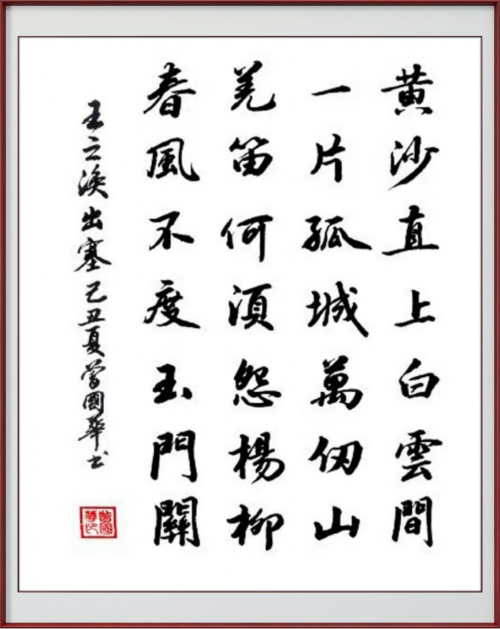 黄沙直上白雲間
一片孤城萬仞山
羌笛何須怨楊柳
春風不度玉門關
王之渙出塞己丑夏曾國華书
曾國華印